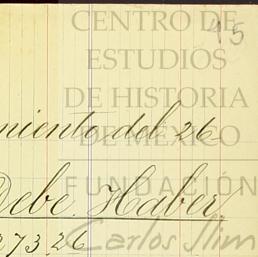 CENTRO DE
45
ESTUDIOS
DE HISTORIA
miento del 26
DE MÉXICO
Debe Haber
FUNDACIÓN
273 26
Carlos Slim